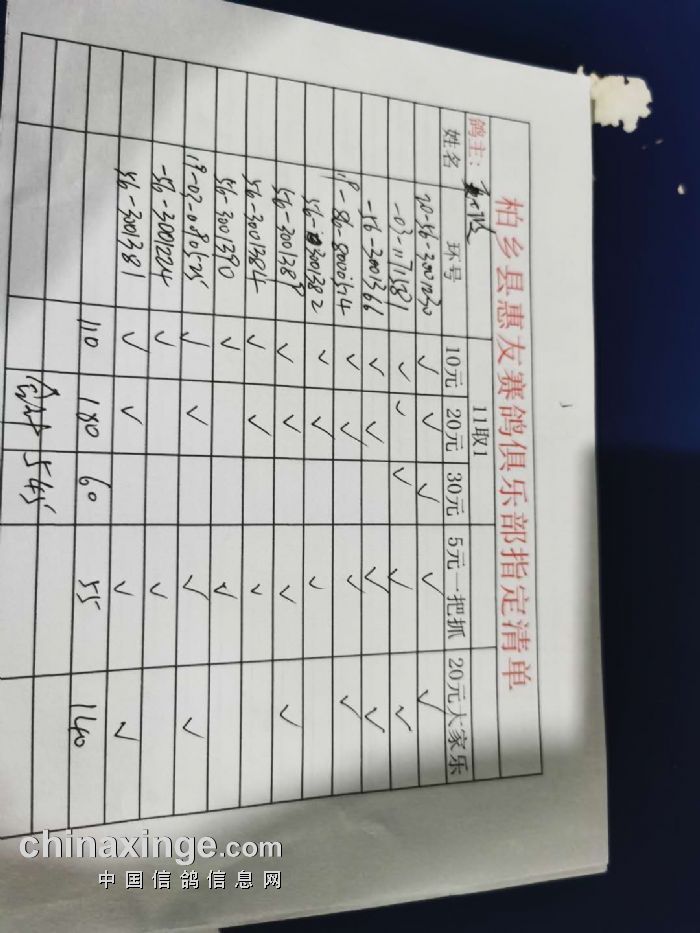 柏乡县惠友赛鸽俱乐部指定清单
鸽主:
11取1
姓名 环号 10元 20元 30元 5元一把抓 20元大家乐
20-56-3001030 ✓ ✓ ✓ ✓ ✓
-03-1171581 ✓ ✓ ✓ ✓ ✓
-56-3001366 ✓ ✓ ✓ ✓
✓ ✓ ✓ ✓
56-3001382 ✓ ✓ ✓
✓ ✓ ✓ ✓
56-3001384 ✓ ✓ ✓
56-3001390 ✓ ✓
19-03-0801525 ✓ ✓ ✓ ✓
-56-3001224 ✓ ✓
56-3001381 ✓ ✓ ✓ ✓
110 180 60 55 140
合计 545
chinaxinge.com
中国信鸽信息网